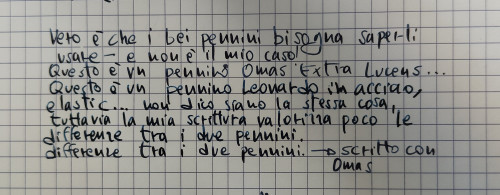 Vero è che i bei pennini bisogna saperli
usare - e non è il mio caso
Questo è un pennino Omas Extra Lucens...
Questo è un pennino Leonardo in acciaio,
elastic... non dico siano la stessa cosa,
tuttavia la mia scrittura valorizza poco le
differenze tra i due pennini.
differenze tra i due pennini. → scritto con
Omas